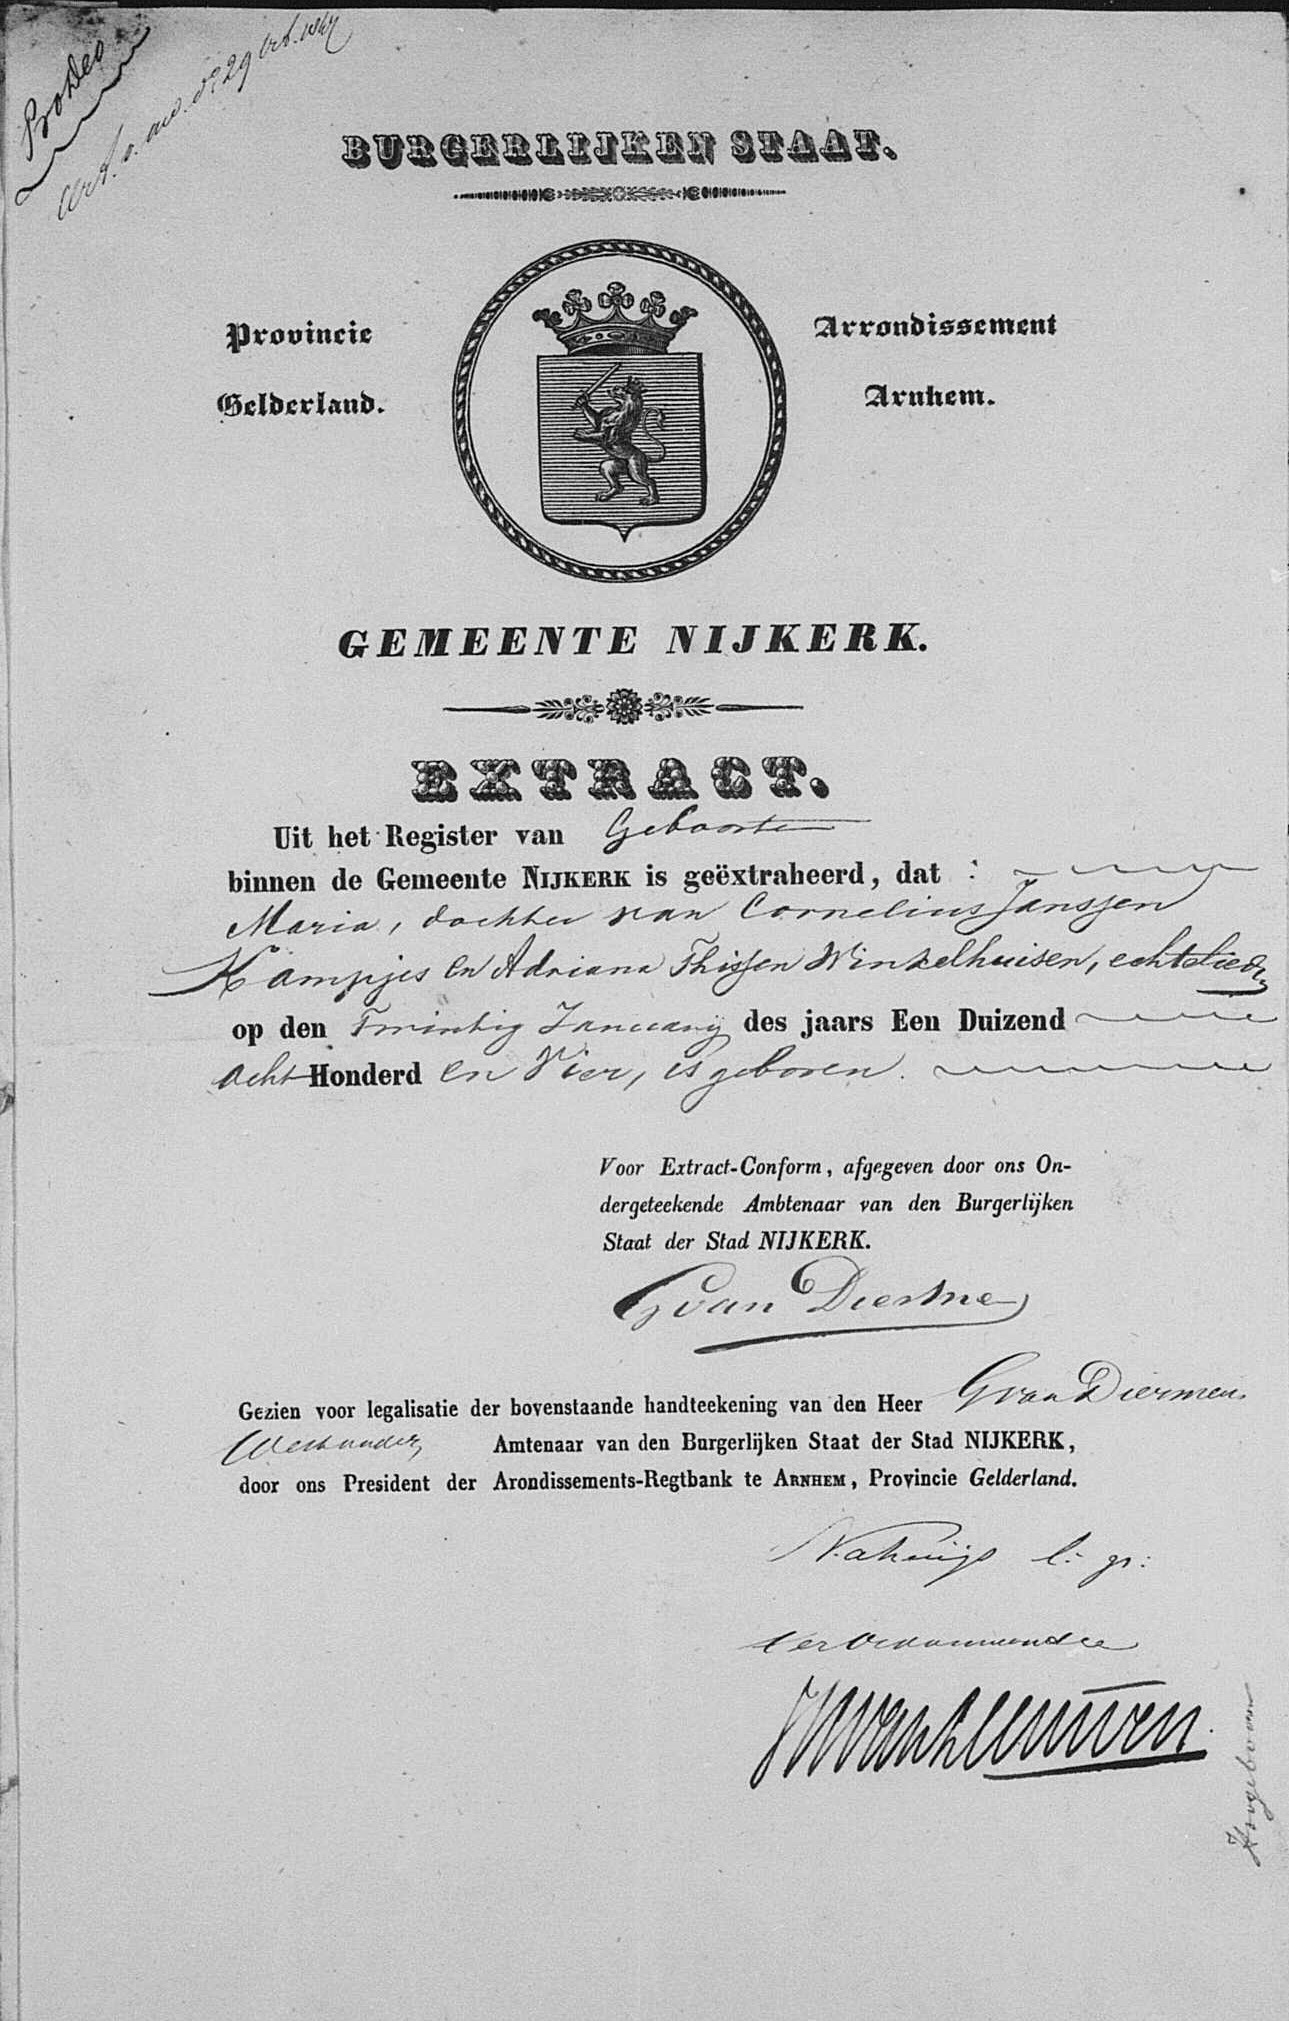 Pro Deo
BURGERLIJKEN STAAT.
Provincie
Gelderland.
Arrondissement
Arnhem.
GEMEENTE NIJKERK.
EXTRACT.
Uit het Register van Geboorte
binnen de Gemeente NIJKERK is geëxtraheerd, dat :
Maria, dochter van Cornelius Janssen
Kampjes en Adriana Thissen Winkelhuisen, echtelieden
op den Twintig January des jaars Een Duizend
Acht Honderd en Vier, is geboren.
Voor Extract-Conform, afgegeven door ons On-
dergeteekende Ambtenaar van den Burgerlijken
Staat der Stad NIJKERK.
G van Diermen
Gezien voor legalisatie der bovenstaande handteekening van den Heer G van Diermen
Wethouder, Amtenaar van den Burgerlijken Staat der Stad NIJKERK,
door ons President der Arondissements-Regtbank te ARNHEM, Provincie Gelderland.
Nahuijs l: gr:
Hoogeboom